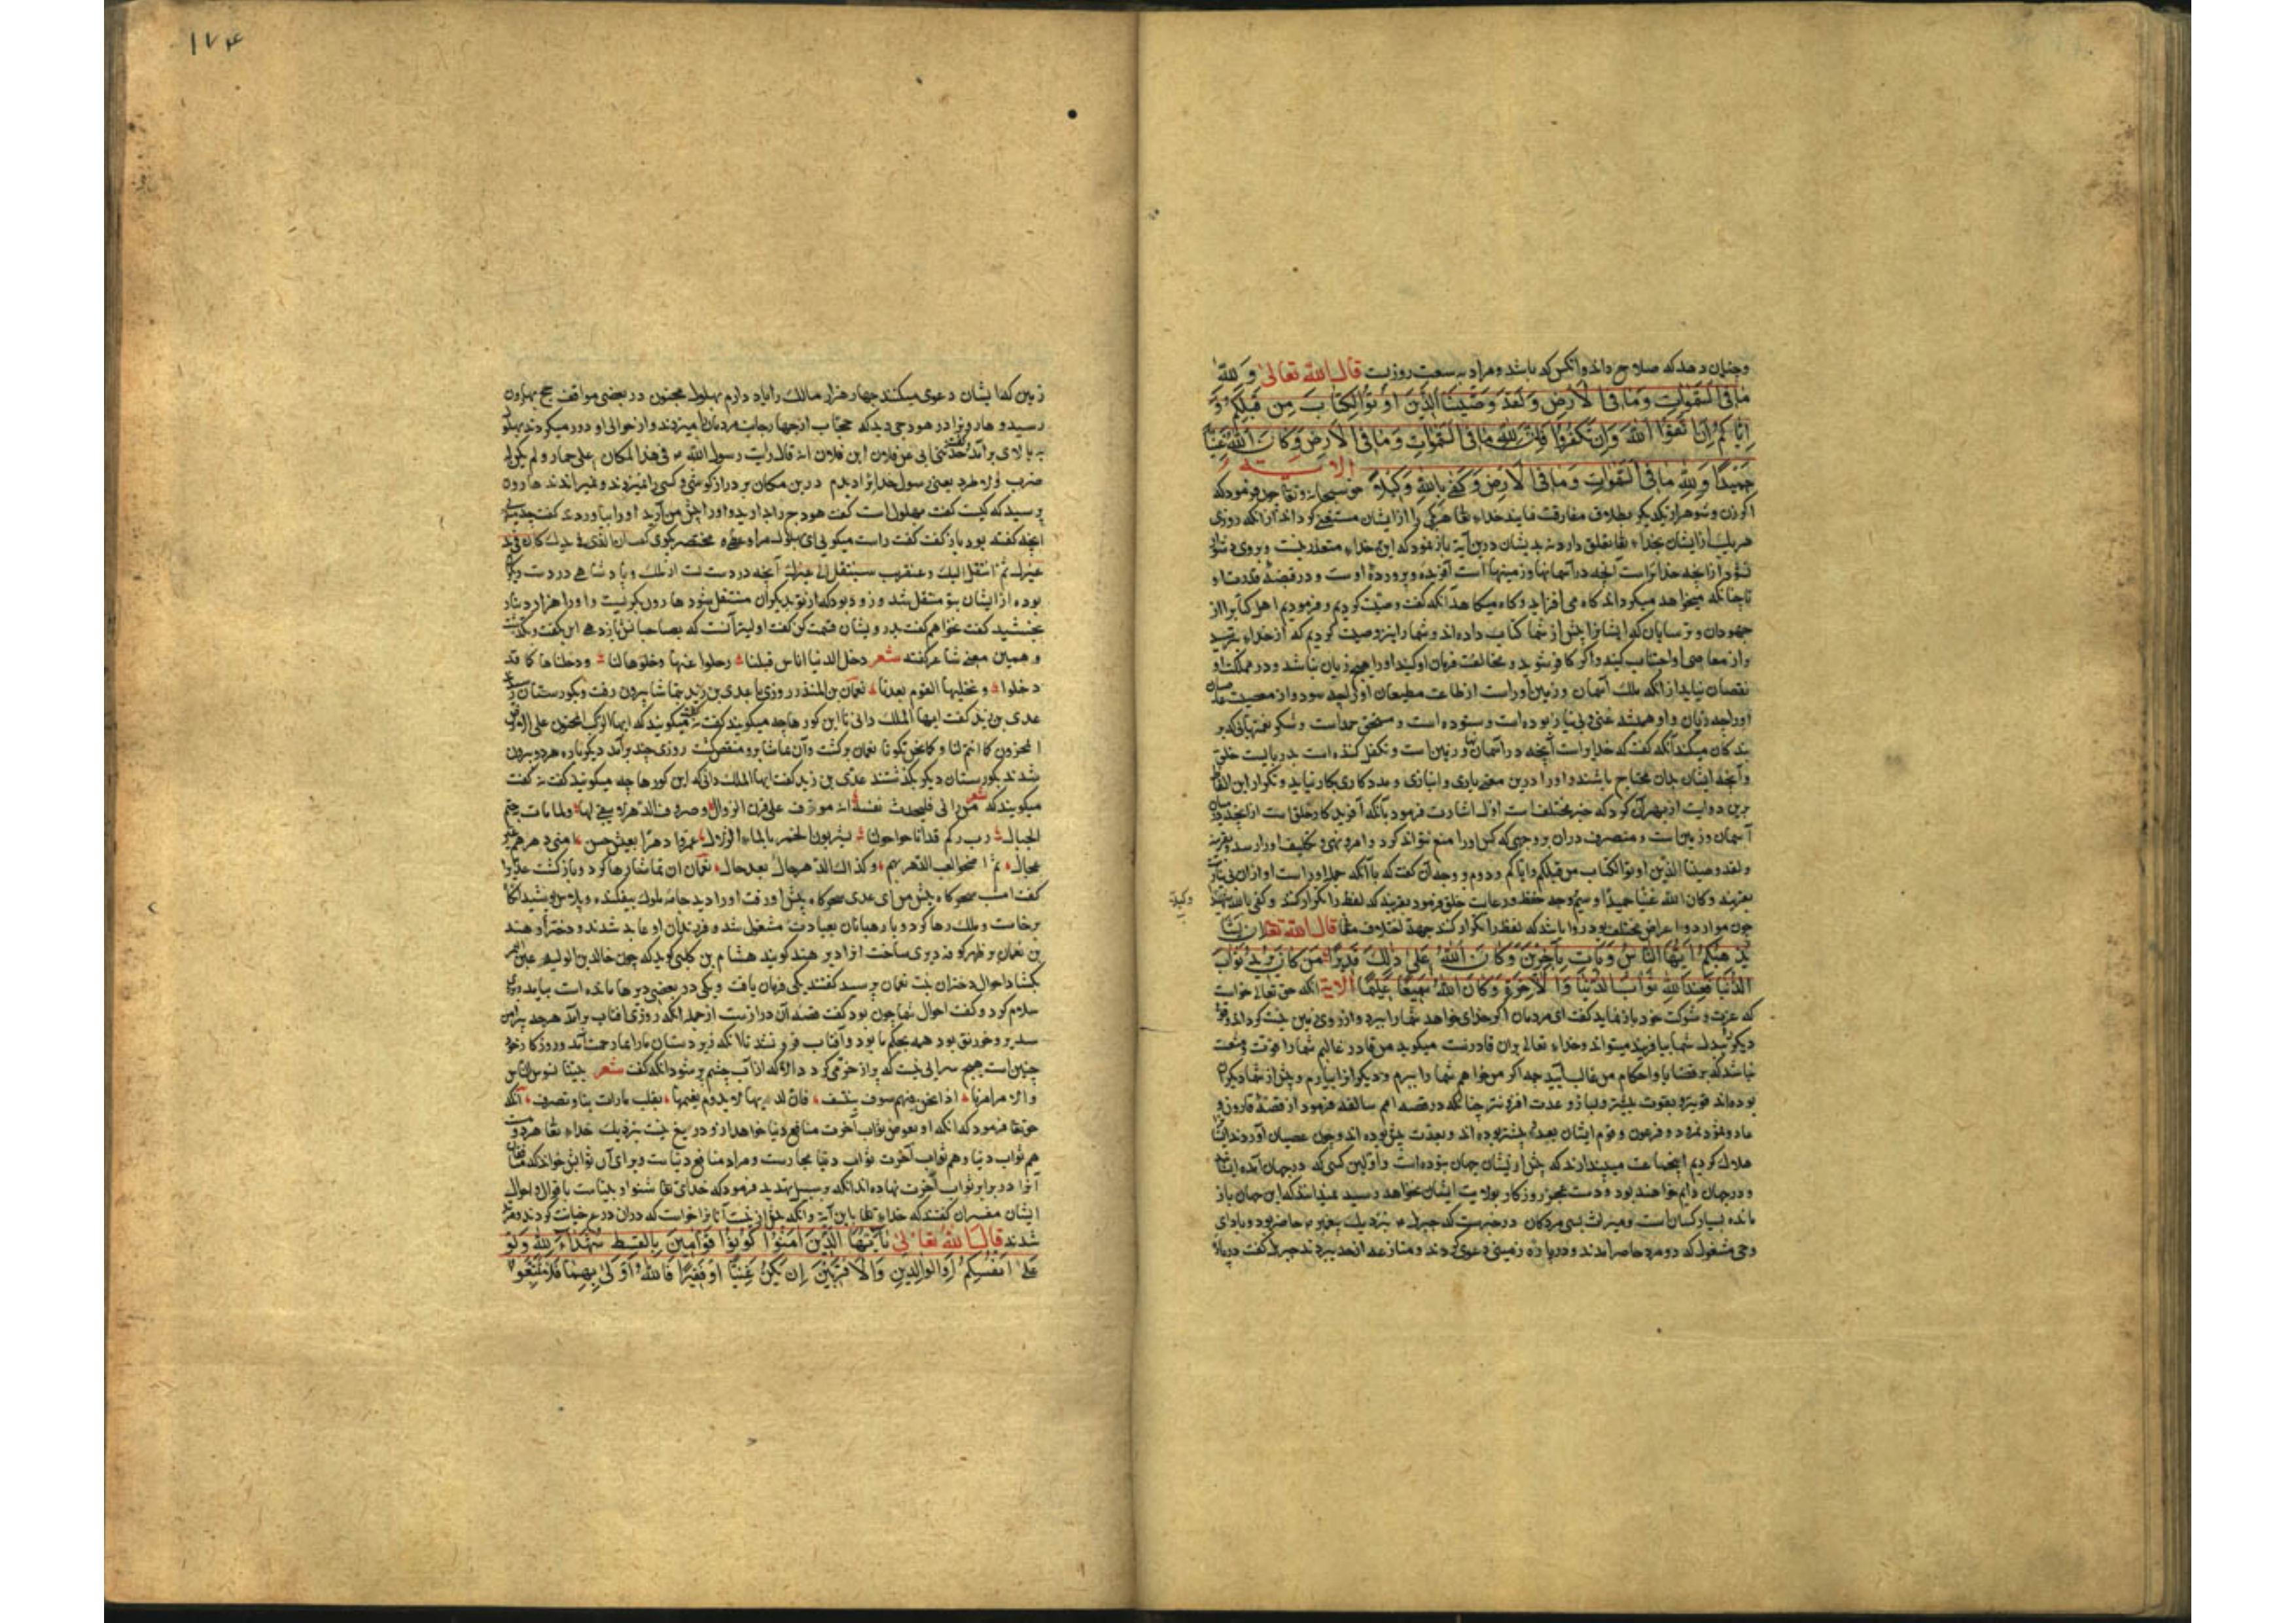 وچنان دهد که صلاح داند وانکس که باشد ومراد به سعت روزیست قال الله تعالی وَ لِلّٰهِ
مَا فِی السَّمٰوَاتِ وَمَا فِی الْاَرْضِ وَ لَقَدْ وَصَّیْنَا الَّذِیْنَ اُوْتُوا الْکِتَابَ مِنْ قَبْلِکُمْ وَ
اِیَّاکُمْ اَنِ اتَّقُوا اللّٰهَ وَاِنْ تَکْفُرُوْا فَاِنَّ لِلّٰهِ مَا فِی السَّمٰوَاتِ وَمَا فِی الْاَرْضِ وَکَانَ اللّٰهُ غَنِیًّا
حَمِیْدًا وَلِلّٰهِ مَا فِی السَّمٰوَاتِ وَمَا فِی الْاَرْضِ وَ کَفٰی بِاللّٰهِ وَکِیْلًا الایة حق سبحانه وتعالی چون فرمود که
اکر زن وشوهر از یکدیکر بطلاق مفارقت نمایند خداء تعا هر یکی را از ایشان مستغنی کرداند از انکه روزی
هر یک از ایشان بخداء تعا تعلق دارد نه بدیشان درین آیة باز نمود که این خداء متعذر نیست و بروی دشوار
نشود از انچه خدایراست آنچه در آسمانها وزمینهاست آفریده وپرورده اوست و در قبضۀ قدرت او
تا چنانکه میخواهد میکرداند کاه می افزاید وکاه میکاهد آنکه گفت وصیت کردیم وفرمودیم اهل کتابرا از
جهودان وترسایان که ایشانرا پیش از شما کتاب داده اند وشما را نیز وصیت کردیم که از خداء بترسید
واز معاصی او اجتناب کنید واکر کافر شوید و مخالفت فرمان او کنید اورا هیچ زیان نباشد ودر مملکت او
نقصان نیاید از انکه ملک آسمان وزمین اوراست از طاعت مطیعان اورا چه سود واز معصیت عاصیان
اورا چه زیان واو همیشه غنی وبی نیاز بوده است وستوده است و مستحق حمداست وشکر نعمتهائی که بر
بندکان میکند آنکه گفت که خدایراست آنچه در آسمان و زمین است وتکفل کننده است بدربایست خلق
وآنچه ایشان بدان محتاج باشند واورا درین معنی یاری وانبازی ومددکاری بکار نیاید وتکرار این الفاظ
برین دو آیت از بهر آن کرد که خبر مختلف است اول اشارت فرمود بآنکه آفریدکار خلق است از انچه در
آسمان وزمین است و متصرف دران بر وجهی که کس اورا منع نتواند کرد وامر ونهی وتکلیف اورا رسد بقرینه
ولقد وصینا الذین اوتوا الکتاب من قبلکم وایاکم ودوم وجه آن گفت که با آنکه جمله اوراست او ازان بی نیازست
بقرینه وکان الله غنیا حمیدا وسیم وجه حفظ ورعایت خلق فرمود بقرینه که لفظ را تکرار کند وکفی بالله
وکیلا
چون موارد واعراض مختلف بود روا باشد که لفظ را تکرار کند جهة اختلاف قال الله تعا اِنْ یَّشَأْ
یُذْهِبْکُمْ اَیُّهَا النَّاسُ وَیَأْتِ بِآخَرِیْنَ وَکَانَ اللّٰهُ عَلٰی ذٰلِکَ قَدِیْرًا مَنْ کَانَ یُرِیْدُ ثَوَابَ
الدُّنْیَا فَعِنْدَ اللّٰهِ ثَوَابُ الدُّنْیَا وَالْآخِرَةِ وَکَانَ اللّٰهُ سَمِیْعًا عَلِیْمًا الایة انکه حق تعالی خواست
که عزت وشوکت خود باز نماید گفت ای مردمان اکر خدای خواهد شما را ببرد واز روی زمین نیست کرداند وقوم
دیکر بدل شما بیافریند میتواند وخداء تعالی بران قادرست میکوید من قادر غالبم شما را قوت ومنعت
نباشد که بر قضایا واحکام من غالب آیید چه اکر من خواهم شما را ببرم ودیکر از ا بیارم وپیش از شما دیکران
بوده اند قویتر وبقوت بیشتر وبساز وعدت افزونتر چنانکه در قصه امم سالفه فرمود از قصۀ قارون و
عاد وثمود ونمرود وفرعون وقوم ایشان بعدد بیشتر بوده اند وبعدت بیش بوده اند وچون عصیان آوردند ایشانرا
هلاک کردیم این جماعت میپندارند که پیش از ایشان جهان بوده است واولین کسی که درجهان آمده ایشانند
ودر جهان دایم خواهند بود ودست عجز روزکار بولایت ایشان نخواهد رسید نمیدانند که این جهان باز
مانده بسیار کسان است ومیراث بسی مردکان در خبرست که جبرئیل بنزدیک پیغمبر حاضر بود وبادای
وحی مشغول که دو مرد حاضر آمدند ودر پاره زمینی دعوی کردند ومنازعه از حد ببردند جبرئیل گفت در پاره
۱۷۴
زمین که ایشان دعوی میکنند چهار هزار مالک را یاد دارم بهلول مجنون در بعضی مواقف حج بهارون
رسید وهارونرا در هودجی دید که حجاب از چهار جانب مردمانرا میزدند واز حوالی او دور میکردند بهلول
به بالای بر آمد گفت حدثنی ابی عن فلان ابن فلان انه قال رایت رسول الله فی هذا المکان علی حمار ولم یکن له
ضرب ولا طرد یعنی رسول خدایرا دیدم درین مکان بر دراز کوشی وکسی را نمیزدند ونمیراندند هارون
پرسید که کیست گفت بهلول است گفت هودج را بدارید واورا پیش من آرید اورا بیاوردند گفت
آنچه گفته بود باز گفت گفت راست میکویی ای بهلول مرا وعظه مختصر بکوی گفت ان الذی فی یدیک کان فی ید
غیرک ثم انتقل الیک وعنقریب سینتقل الی غیرک آنچه در دست تست از ملک وپادشاهی در دست دیکران
بوده از ایشان بتو منتقل شد وزود بود که از تو بدیکران منتقل شود هارون بکریست واورا هزار دینار
بخشید گفت نخواهم گفت بدرویشان قسمت کن گفت اولیتر آنست که بصاحبانش باز دهی این گفت
وهمین معنی شاعر گفته شعر دخل الدنیا اناس قبلنا رحلوا عنها وخلوها لنا ودخلناها کما قد
دخلوا ونخلیها لقوم بعدنا نعمان بن المنذر روزی با عدی بن زید بتماشا بیرون رفت وبکورستان
عدی بن زید گفت ایها الملک دانی تا این کور ها چه میکویند گفت نه گفت میکویند که ایها الرکب المخبون علی الارض
المجدون کما انتم کنا وکما نحن تکونون نعمان برکشت وآن تماشا برو منغص کشت روزی چند بر آمد دیکر باره هر دو بیرون
شدند بکورستان دیکر بکذشتند عدی بن زید گفت ایها الملک دانی که این کورها چه میکویند گفت نه گفت
میکویند که شعر من رآنا فلیحدث نفسه انه موف علی قرن الزوال وصروف الدهر لا یبقی لها ولما تأت به صم
الجبال رب رکب قد اناخوا حولنا یشربون الخمر بالماء الزلال عمروا دهرا بعیش حسن
عجال ثم اضحوا لعب الدهر بهم وکذاک الدهر حالا بعد حال نعمان آن تماشا رها کرد وباز کشت عدی را
گفت امشب سحرکاه پیش من آی عدی سحرکاه پیش او رفت اورا دید جامۀ ملوک بیفکنده وپلاس پوشیده
برخاست وملک رها کرد وبا رهبانان بعبادت مشغول شد وفرزندان او عابد شدند ودختر او هند
بن نعمان بر ظهر کوفه دیری ساخت انرا دیر هند کویند هشام بن کلبی کوید که چون خالد بن الولید عین التمر
بکشاد احوال دختران بنت نعمان پرسید گفتند یکی فرمان یافت ویکی در بعضی دیرها مانده است بیامد
سلام کرد وگفت احوال شما چون بود گفت قصۀ آن درازست از جمله انکه روزی آفتاب بر آمد هرچه پیرامن
سدیر وخورنق بود همه بحکم ما بود وآفتاب فرو نشد تا انکه زیردستان ما را بما رحمت آمد وروزکار خود
چنین است هیچ سرایی نیست که پر از خرمی کردد الا که از آب چشم پر شود انکه گفت شعر بینا نسوس الناس
والامر امرنا اذا نحن فیهم سوقة نتنصف فاف لدنیا لا یدوم نعیمها تقلب تارات بنا وتصرف آنکه
حق تعا فرمود که انکه او بعوض ثواب آخرت منافع دنیا خواهد از و دریغ نیست بنزدیک خداء تعا هر دو هست
هم ثواب دنیا وهم ثواب آخرت ثواب دنیا مجازست ومراد منافع دنیاست وبرای آن ثوابش خواند که
آنرا در برابر ثواب آخرت نهاده اند انکه بر سبیل تهدید فرمود که خدای تعا شنوا وبیناست باقوال واحوال
ایشان مفسران گفتند که خداء تعا باین آیة
شدند قال الله تعالی یَا اَیُّهَا الَّذِیْنَ اٰمَنُوْا کُوْنُوْا قَوَّامِیْنَ بِالْقِسْطِ شُهَدَاءَ لِلّٰهِ وَلَوْ
عَلٰی اَنْفُسِکُمْ اَوِ الْوَالِدَیْنِ وَالْاَقْرَبِیْنَ اِنْ یَکُنْ غَنِیًّا اَوْ فَقِیْرًا فَاللّٰهُ اَوْلٰی بِهِمَا فَلَا تَتَّبِعُوا